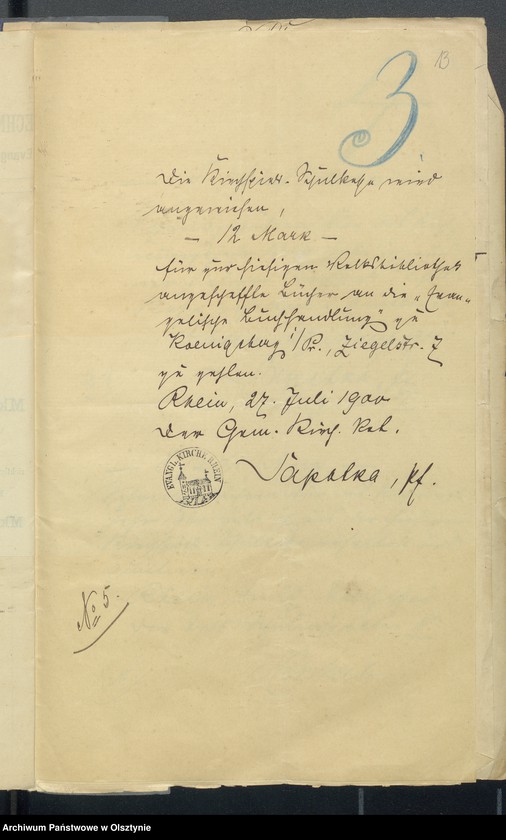 13
3
Die Kirchspiels-Schulkasse wird
angewiesen,
— 12 Mark —
für zur hiesigen Volksbibliothek
angeschaffte Bücher an die „Evan-
gelische Buchhandlung" zu
Koenigsberg i/Pr., Ziegelstr. 7
zu zahlen.
Rhein, 27. Juli 1900
Der Gem. Kirch. Rat.
EVANGL. KIRCHE RHEIN
Sapatka, Pf.
No 5.
Archiwum Państwowe w Olsztynie